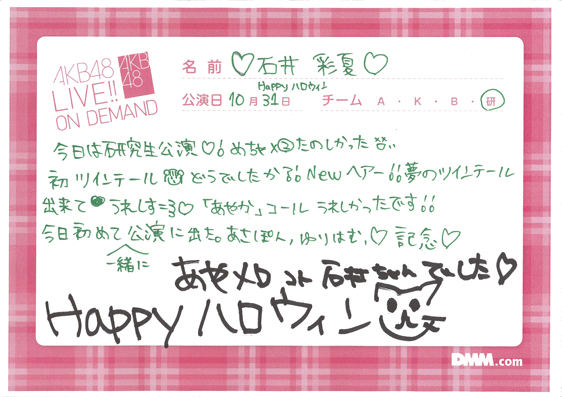 AKB48
LIVE!!
ON DEMAND
AKB
48
名前 ♡石井 彩夏♡
Happy ハロウィン
公演日 10月31日 チーム A・K・B・研
今日は研究生公演♡! めちゃ×②たのしかった
初ツインテール どうでしたか?!! Newヘアー!! 夢のツインテール
出来て うれしす=3♡ 「あやか」コール うれしかったです!!
今日初めて公演に出た。あさぽん, ゆりはむ, ♡ 記念♡
一緒に
あやメロ コト 石井ちゃんでした♡
Happy ハロウィン
DMM.com